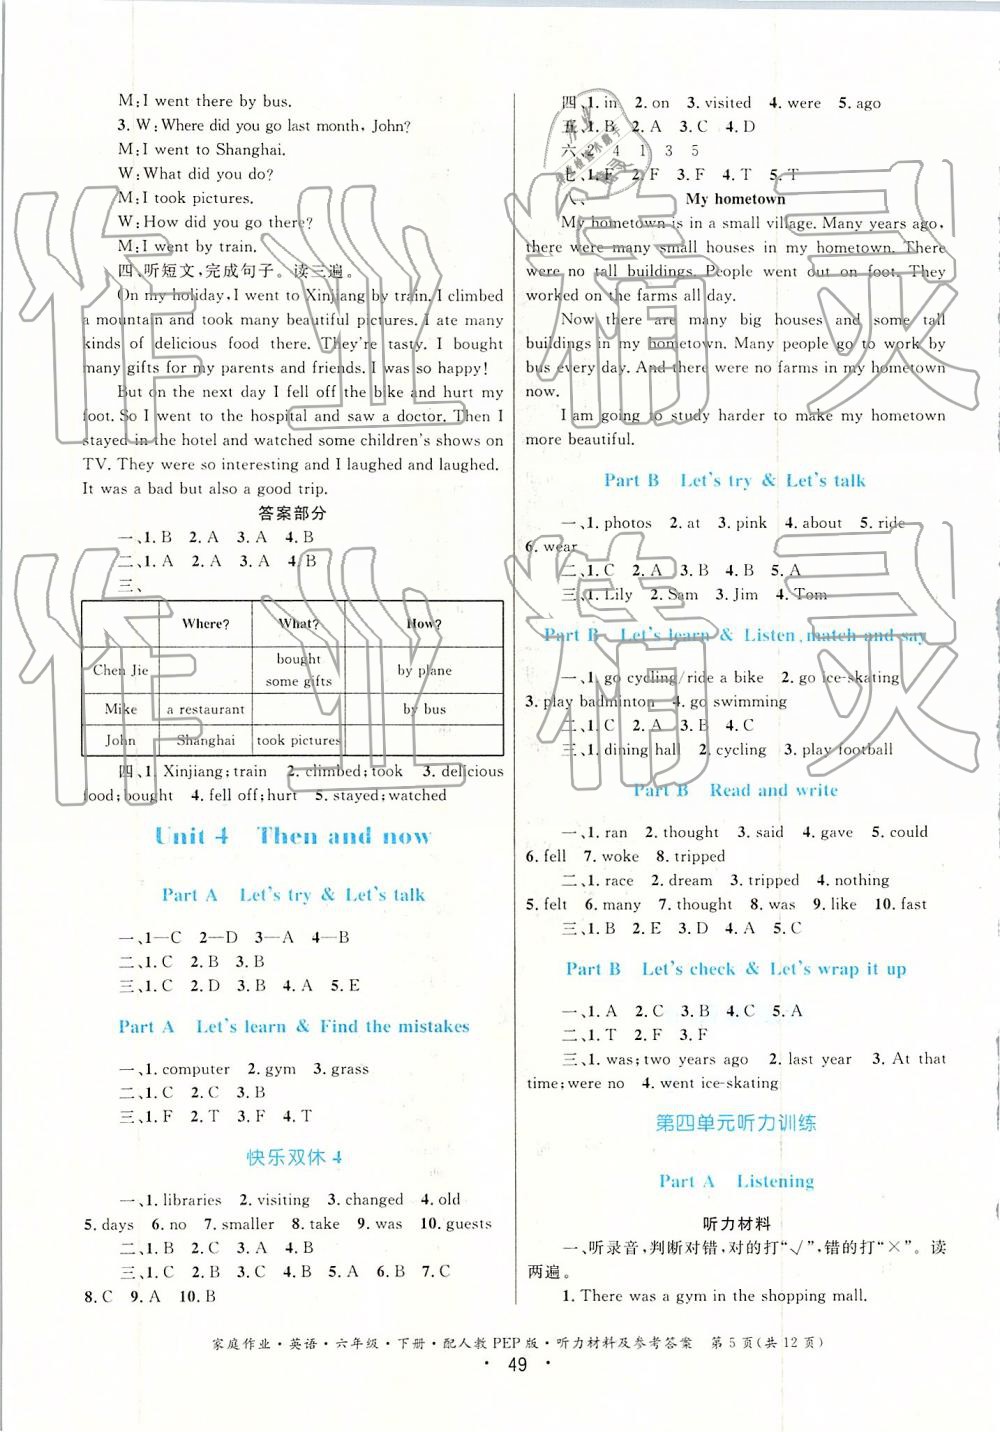 M:I went there by bus.
3. W:Where did you go last month, John?
M:I went to Shanghai.
W:What did you do?
M:I took pictures.
W:How did you go there?
M:I went by train.
四、听短文,完成句子。读三遍。
On my holiday, I went to Xinjiang by train. I climbed
a mountain and took many beautiful pictures. I ate many
kinds of delicious food there. They're tasty. I bought
many gifts for my parents and friends. I was so happy!
But on the next day I fell off the bike and hurt my
foot. So I went to the hospital and saw a doctor. Then I
stayed in the hotel and watched some children's shows on
TV. They were so interesting and I laughed and laughed.
It was a bad but also a good trip.
答案部分
一、1. B 2. A 3. A 4. B
二、1. A 2. A 3. A 4. B
三、
Where? What? How?
Chen Jie bought some gifts by plane
Mike a restaurant by bus
John Shanghai took pictures
四、1. Xinjiang;train 2. climbed;took 3. delicious
food;bought 4. fell off;hurt 5. stayed;watched
Unit 4 Then and now
Part A Let's try & Let's talk
一、1—C 2—D 3—A 4—B
二、1. C 2. B 3. B
三、1. C 2. D 3. B 4. A 5. E
Part A Let's learn & Find the mistakes
一、1. computer 2. gym 3. grass
二、1. C 2. C 3. B
三、1. F 2. T 3. F 4. T
快乐双休 4
一、1. libraries 2. visiting 3. changed 4. old
5. days 6. no 7. smaller 8. take 9. was 10. guests
二、1. B 2. C 3. A 4. B
三、1. C 2. B 3. C 4. B 5. A 6. B 7. C
8. C 9. A 10. B
四、1. in 2. on 3. visited 4. were 5. ago
五、1. B 2. A 3. C 4. D
六、2 4 1 3 5
七、1. F 2. F 3. F 4. T 5. T
八、 My hometown
My hometown is in a small village. Many years ago,
there were many small houses in my hometown. There
were no tall buildings. People went out on foot. They
worked on the farms all day.
Now there are many big houses and some tall
buildings in my hometown. Many people go to work by
bus every day. And there were no farms in my hometown
now.
I am going to study harder to make my hometown
more beautiful.
Part B Let's try & Let's talk
一、1. photos 2. at 3. pink 4. about 5. ride
6. wear
二、1. C 2. A 3. B 4. B 5. A
三、1. Lily 2. Sam 3. Jim 4. Tom
Part B Let's learn & Listen, match and say
一、1. go cycling/ride a bike 2. go ice-skating
3. play badminton 4. go swimming
二、1. C 2. A 3. B 4. C
三、1. dining hall 2. cycling 3. play football
Part B Read and write
一、1. ran 2. thought 3. said 4. gave 5. could
6. fell 7. woke 8. tripped
二、1. race 2. dream 3. tripped 4. nothing
5. felt 6. many 7. thought 8. was 9. like 10. fast
三、1. B 2. E 3. D 4. A 5. C
Part B Let's check & Let's wrap it up
一、1. A 2. C 3. B 4. C 5. A
二、1. T 2. F 3. F
三、1. was;two years ago 2. last year 3. At that
time;were no 4. went ice-skating
第四单元听力训练
Part A Listening
听力材料
一、听录音,判断对错,对的打“√”,错的打“×”。读
两遍。
1. There was a gym in the shopping mall.
家庭作业·英语·六年级·下册·配人教 PEP 版·听力材料及参考答案 第 5 页(共 12 页)
· 49 ·
作业精灵
作业精灵